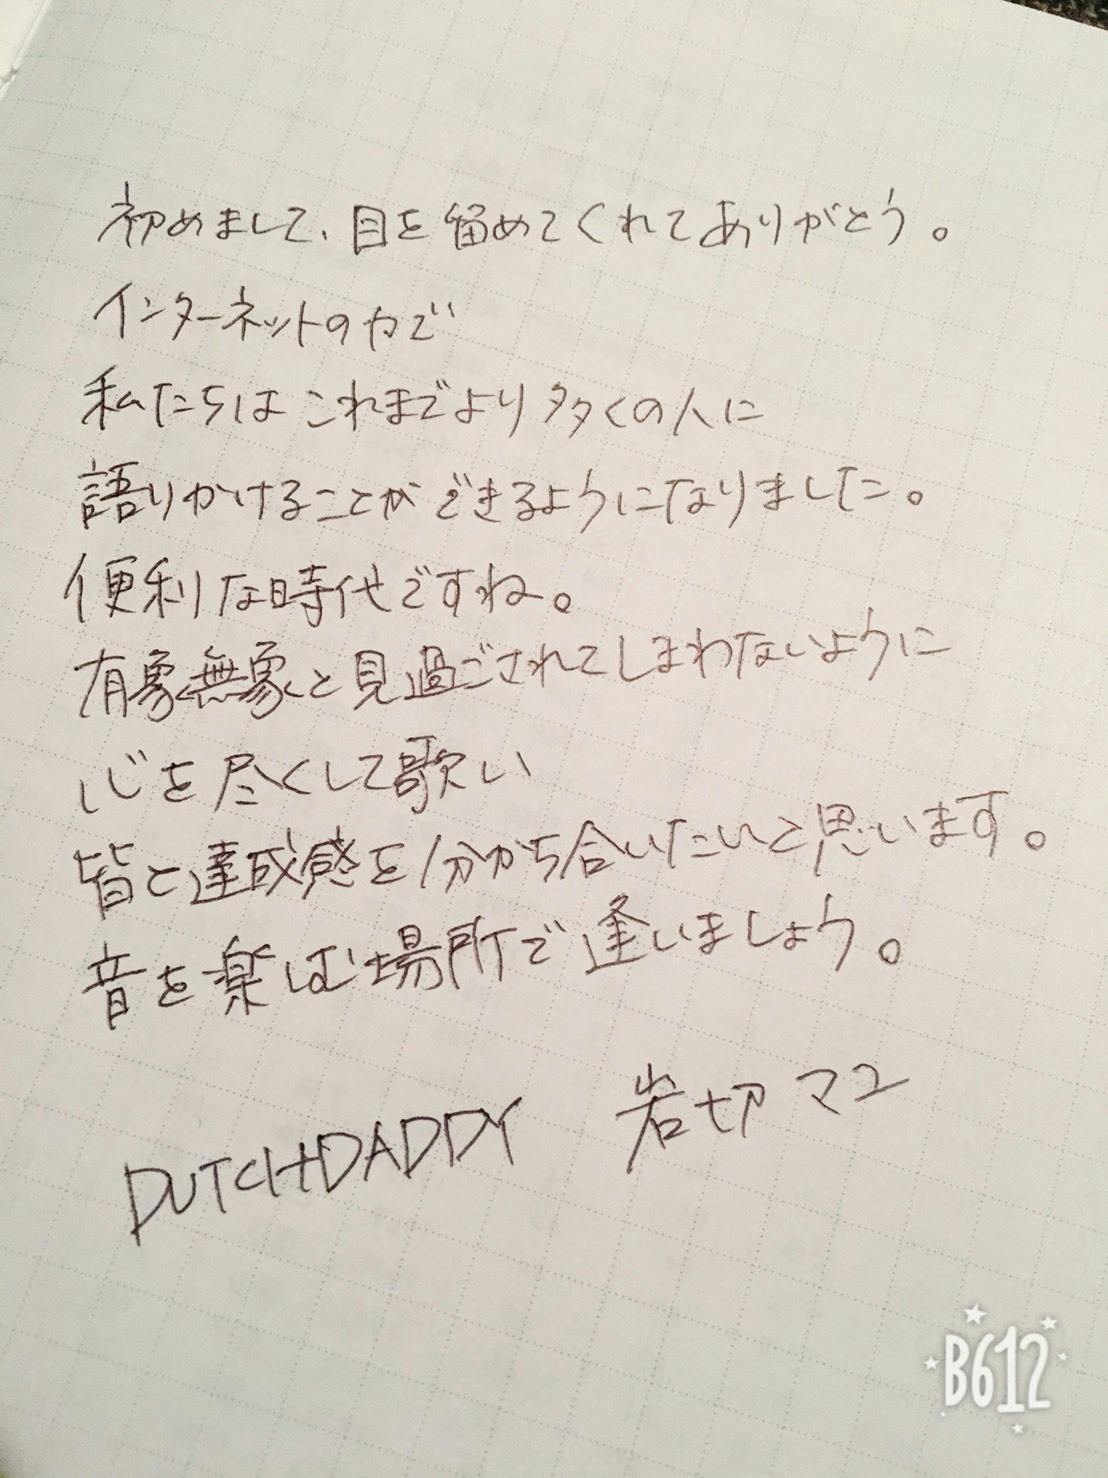 初めまして、目を留めてくれてありがとう。
インターネットの力で
私たちはこれまでより多くの人に
語りかけることができるようになりました。
便利な時代ですね。
有象無象と見過ごされてしまわないように
心を尽くして歌い
皆と達成感を分かち合いたいと思います。
音を楽しむ場所で逢いましょう。
DUTCHDADDY 岩切マユ
B612